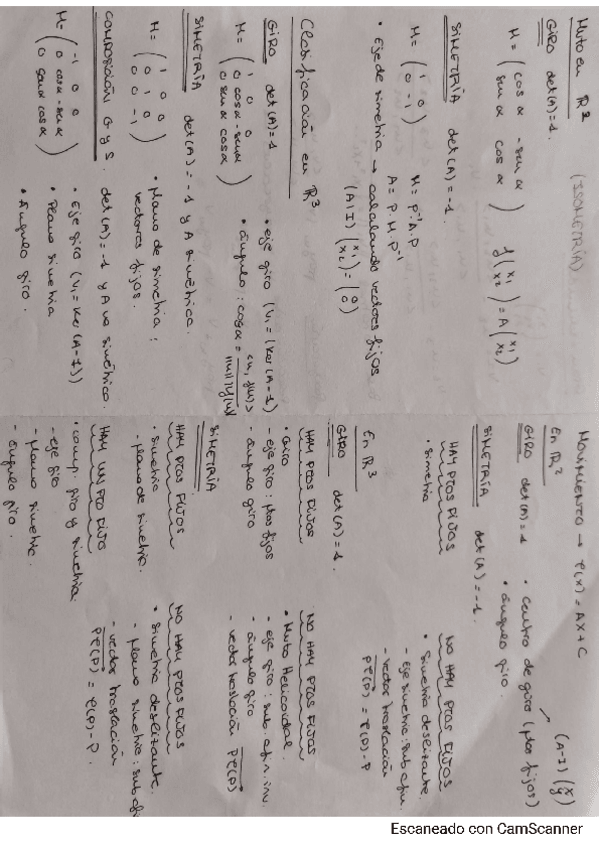 Mvto en R²
(ISOMETRÍA)
GIRO det(A)=1.
M = ( cos α -sen α
sen α cos α )
f(x1 x2) = A(x1 x2)
SIMETRÍA det(A)=-1.
M = ( 1 0
0 -1 ) M = P⁻¹.A.P
A = P.M.P⁻¹
• Eje de simetría → calculando vectores fijos.
(A|I) (x1 x2) = (0 0)
Clasificación en R³.
GIRO det(A)=1
• eje giro (V1 = (Ker(A-I))
M = ( 1 0 0
0 cos α -sen α
0 sen α cos α )
• ángulo: cos α = <u, f(u)>
||u|| ||f(u)||
SIMETRÍA det(A) = -1 y A simétrica.
M = ( 1 0 0
0 1 0
0 0 -1 )
• Plano de simetría:
vectores fijos.
COMPOSICIÓN G y S. det(A)=-1 y A no simétrica.
M = ( -1 0 0
0 cos α -sen α
0 sen α cos α )
• Eje giro (V1 = Ker(A-I))
• Plano simetría
• Ángulo giro.
MOVIMIENTO → f(x) = AX + C
En R²
GIRO det(A)=1
• Centro de giro (ptos fijos)
(A-I)(x y)
• ángulo giro.
SIMETRÍA det(A)=-1.
HAY PTOS FIJOS
• Simetría
NO HAY PTOS FIJOS
• Simetría deslizante.
- eje simetría: sub afín.
- vector traslación
Pf(P) = f(P)-P
En R³
GIRO det(A)=1.
HAY PTOS FIJOS
• Giro
- eje giro: ptos fijos
- ángulo giro
NO HAY PTOS FIJOS
• Mvto Helicoidal.
- eje giro: sub. afín. inv.
- ángulo giro
- vector traslación Pf(P)
SIMETRÍA
HAY PTOS FIJOS
• Simetría
- plano de simetría.
NO HAY PTOS FIJOS
• Simetría deslizante.
- plano simetría: sub afín
- vector traslación
Pf(P) = f(P)-P.
HAY UN PTO FIJO
• comp. giro y simetría.
- eje giro
- plano simetría.
- ángulo giro.
Escaneado con CamScanner